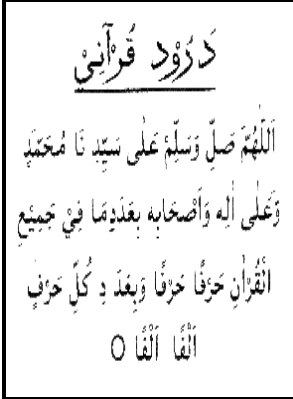 دَرُوْد قُرْآنِیْ
اَللّٰهُمَّ صَلِّ وَسَلِّمْ عَلٰی سَيِّدِ نَا مُحَمَّدٍ
وَعَلٰی اٰلِه وَاَصْحَابِه بِعَدَدِمَا فِيْ جَمِيْعِ
الْقُرْاٰنِ حَرْفًا حَرْفًا وَبِعَدَ دِ كُلِّ حَرْفٍ
اَلْفًا اَلْفًا O